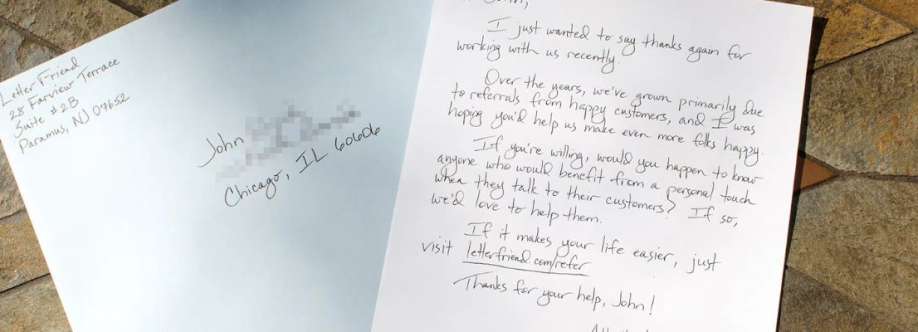 Letter Friend
28 Farview Terrace
Suite #2B
Paramus, NJ 07652
John
Chicago, IL 60606
I just wanted to say thanks again for
working with us recently.
Over the years, we've grown primarily due
to referrals from happy customers, and I was
hoping you'd help us make even more folks happy.
If you're willing, would you happen to know
anyone who would benefit from a personal touch
when they talk to their customers? If so,
we'd love to help them.
If it makes your life easier, just
visit letterfriend.com/refer
Thanks for your help, John!